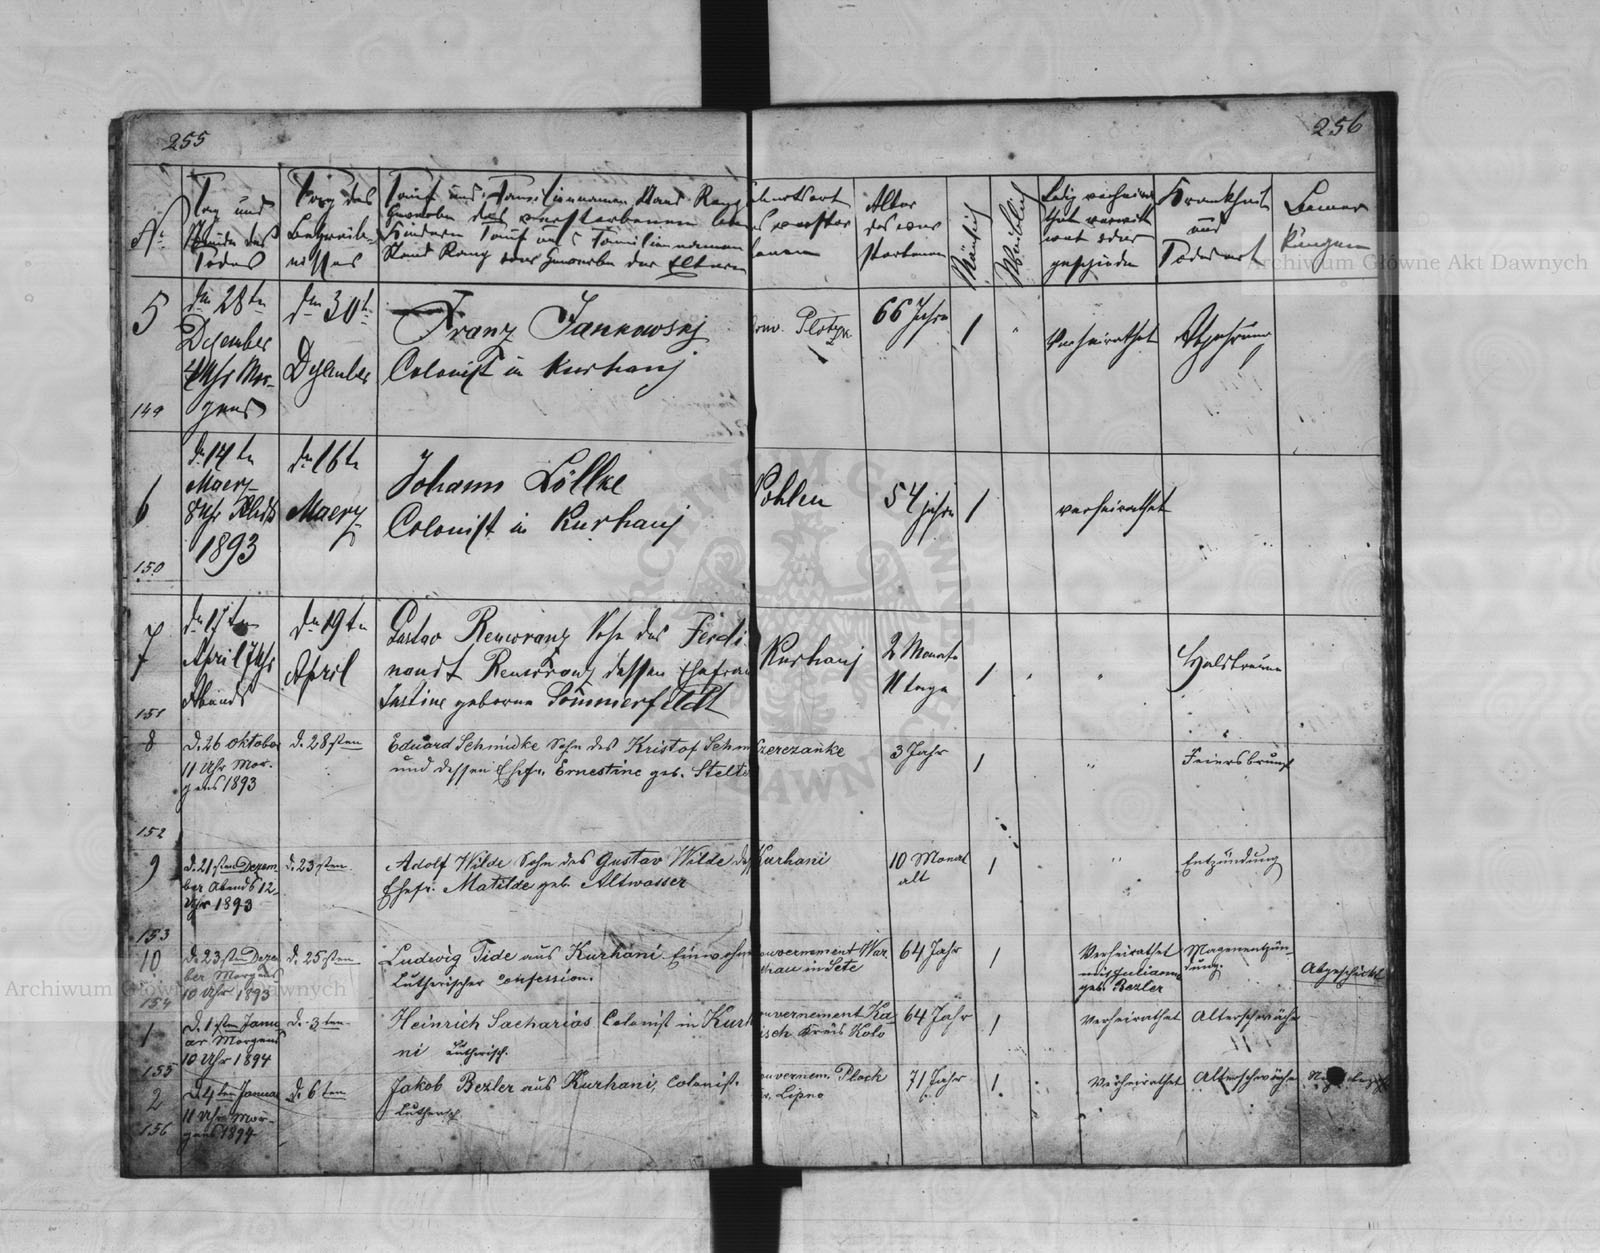 255
256
No
Tag und
Stunde des
Todes
Tag des
Begräb-
nisses
Tauf und Familiennamen Stand Rang
Gewerbe des verstorbenen bei
Kindern Tauf und Familiennamen
Stand Rang oder Gewerbe der Eltern
burtsort
es verstor
benen
Alter
des ver
storbenen
Mänlich
Weiblich
Ledig verheira
thet verwit
wet oder
geschieden
Krankheit
und
Todesart
Bemer
kungen
5
149
den 28ten
Dezember
Uhr Mor-
gens
den 30t
Dezember
Franz Jankowskj
Colonist in Kurhanj
66 Jahre
1
Verheirathet
6
150
den 14ten
Maerz
8 Uhr Abds
1893
den 16ten
Maerz
Johann Löllke
Colonist in Kurhanj
Pohlen
54 jahre
1
verheirathet
7
151
den 17ten
April 7 Uhr
Abends
den 19ten
April
Gustav Renwranz Sohn des Ferdi
nandt Renwranz dessen Ehefrau
Justine geborne Sommerfeldt
Kurhanj
2 Monate
11 tage
1
Halsbreune
8
152
d. 26 Oktober
11 Uhr Mor-
gens 1893
d. 28sten
Eduard Schmidke Sohn des Kristof Schm
und dessen Ehefr. Ernestine geb. Stelte
Czerezanke
3 Jahr
1
9
153
d. 21sten Dezem
ber Abends 12
Uhr 1893
d. 23sten
Adolf Wilde Sohn des Gustav Wilde des
Ehefr. Matilde geb. Altwasser
Kurhani
10 Monat
alt
1
Entzündung
10
154
d. 23sten Deze
ber Morgens
10 Uhr 1893
d. 25sten
Ludwig Tide aus Kurhani Einwohne
Lutherischer Confession.
ouvernement War
schau in Sete
64 Jahr
1
Verheirathet
mit Julianna
geb. Bezler
Magenentzün-
dung.
Abgeschickt
1
155
d. 1sten Janu
ar Morgens
10 Uhr 1894
d. 3ten
Heinrich Sacharias Colonist in Kurh
ni Lutherisch.
ouvernement Ka
isch Kreis Kolo
64 Jahr
1
Verheirathet
Alterschwäche
2
156
D. 4ten Januar
11 Uhr Mor-
gens 1894
d. 6ten
Jakob Bezler aus Kurhani, Colonist.
Luthersch.
ouvernem. Plock
r. Lipno
71 Jahr
1.
Verheirathet
Alterschwäche
Archiwum Główne Akt Dawnych
Archiwum Główne Akt Dawnych
ARCHIWUM GŁÓWNE AKT DAWNYCH